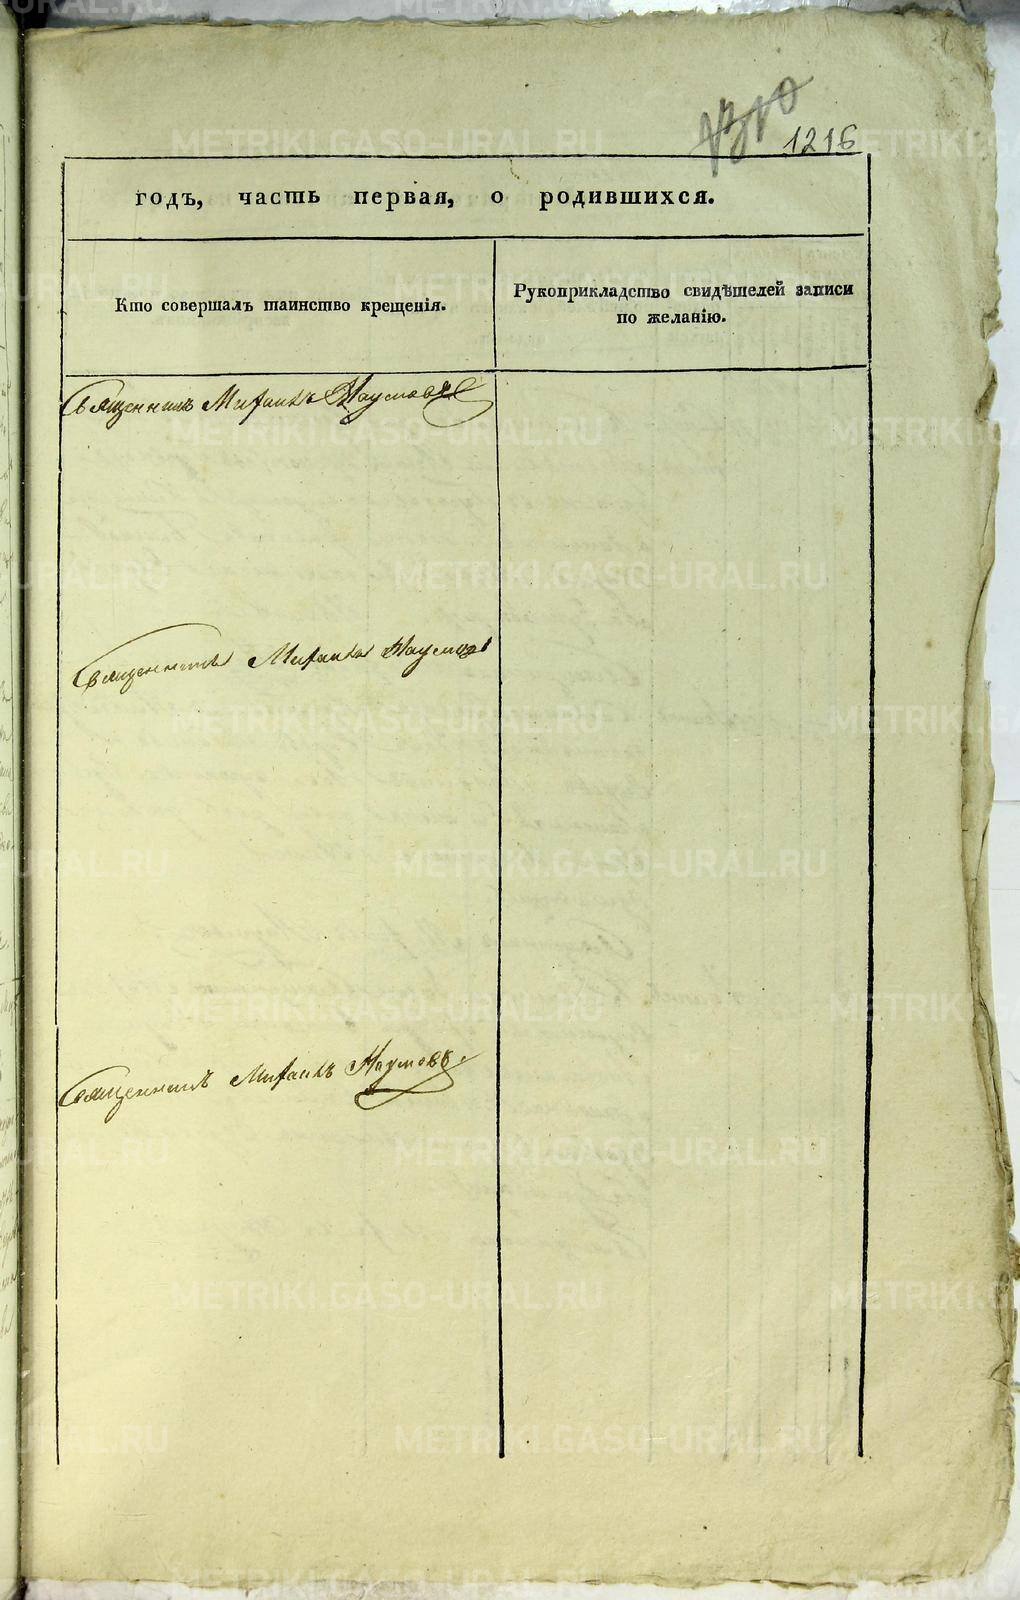 1310
1216
годъ, часть первая, о родившихся.
Кто совершалъ таинство крещенія.
Рукоприкладство свидѣтелей записи
по желанію.
Священникъ Михаилъ Наумовъ
Священникъ Михаилъ Наумовъ
Священникъ Михаилъ Наумовъ.
METRIKI.GASO-URAL.RU